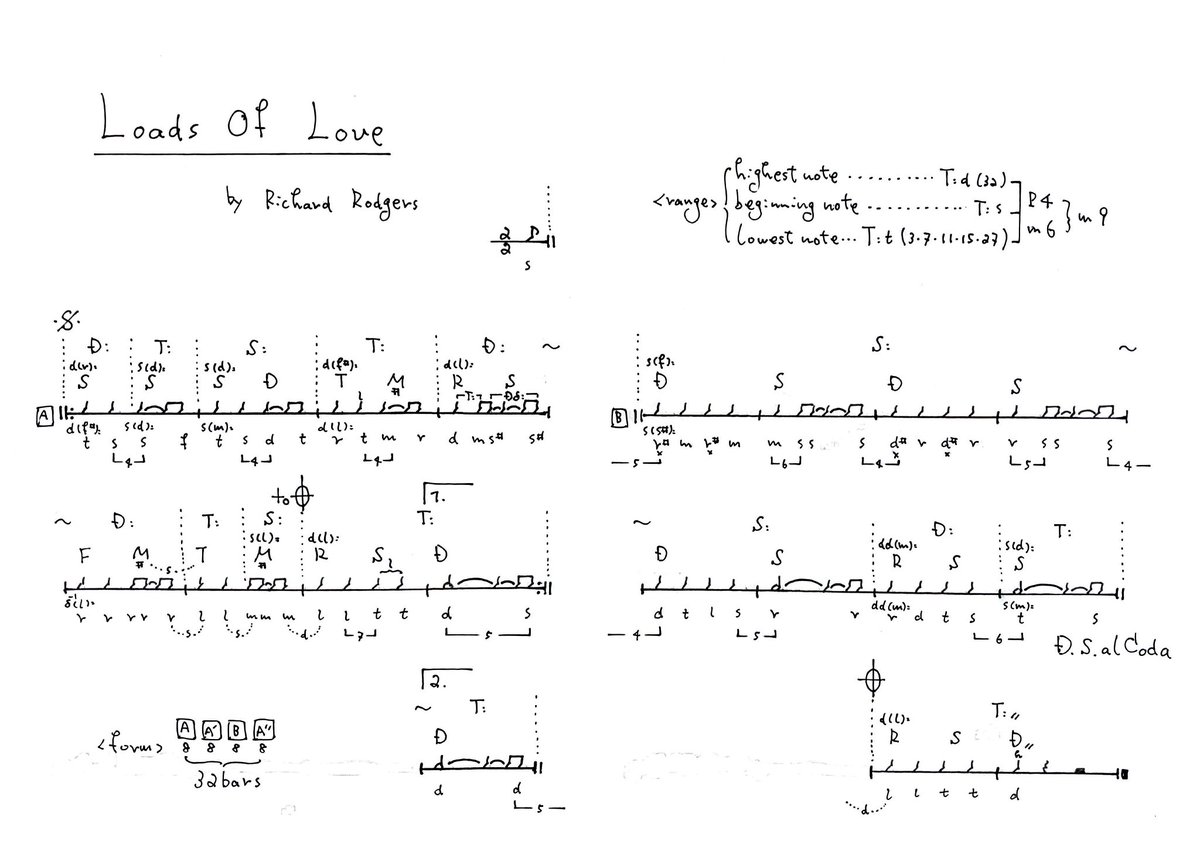 Loads Of Love
by Richard Rodgers
2
2
s
<range>
highest note .......... T:d (32)
beginning note ........... T:s
lowest note... T:t (3.7.11.15.27)
P4
m6
m9
Đ: T: S: T: Đ: ~
d(r): s(d): s(d): d(f#): d(l):
S S S Đ T M# R S
A
d(f#): s(d): s(m): d(l):
t s s f t s d t r t m r d m s# s#
4 4 4
S: ~
s(f):
Đ S Đ S
B
s(s#):
r# m r# m m s s s d# r d# r r s s s
x x x x
5 6 4 5 4
to
~ Đ: T: S: 1. T:
s(l): d(l):
F M# s T M# R S l Đ
r r r r r l l m m m l l t t d s
s s d 7 5
~ S: Đ: T:
dd(m): s(d):
Đ S R S S
dd(m): s(m):
d t l s r r r d t s t s
4 5 6
Đ.S. al Coda
<form>
A A' B A"
8 8 8 8
32bars
2.
~ T:
Đ
d d
5
T:
d(l):
R S Đ
l l t t d
d